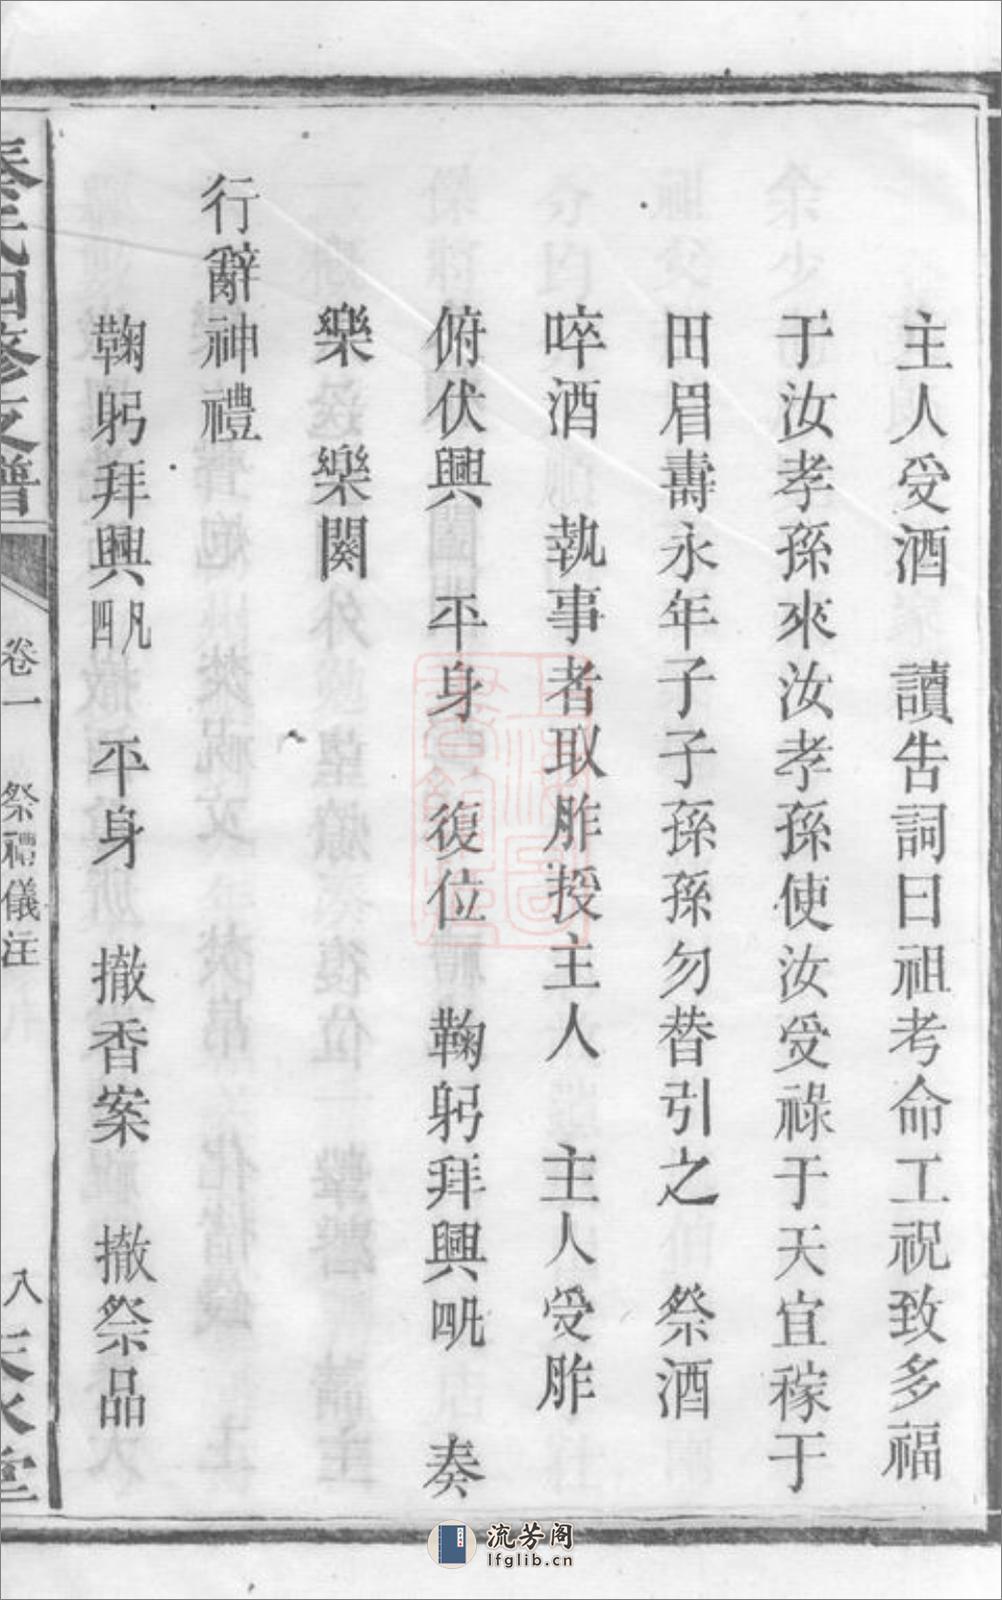 主人受酒　讀告詞曰祖考命工祝致多福
于汝孝孫來汝孝孫使汝受祿于天宜稼于
田眉壽永年子子孫孫勿替引之　祭酒
啐酒　執事者取胙授主人　主人受胙
俯伏興　平身　復位　鞠躬拜興凡四　奏
樂　樂闋
行辭神禮
鞠躬拜興凡四　平身　撤香案　撤祭品
氏四修支譜
卷一　祭禮儀注
八
水堂
流芳阁
lfglib.cn